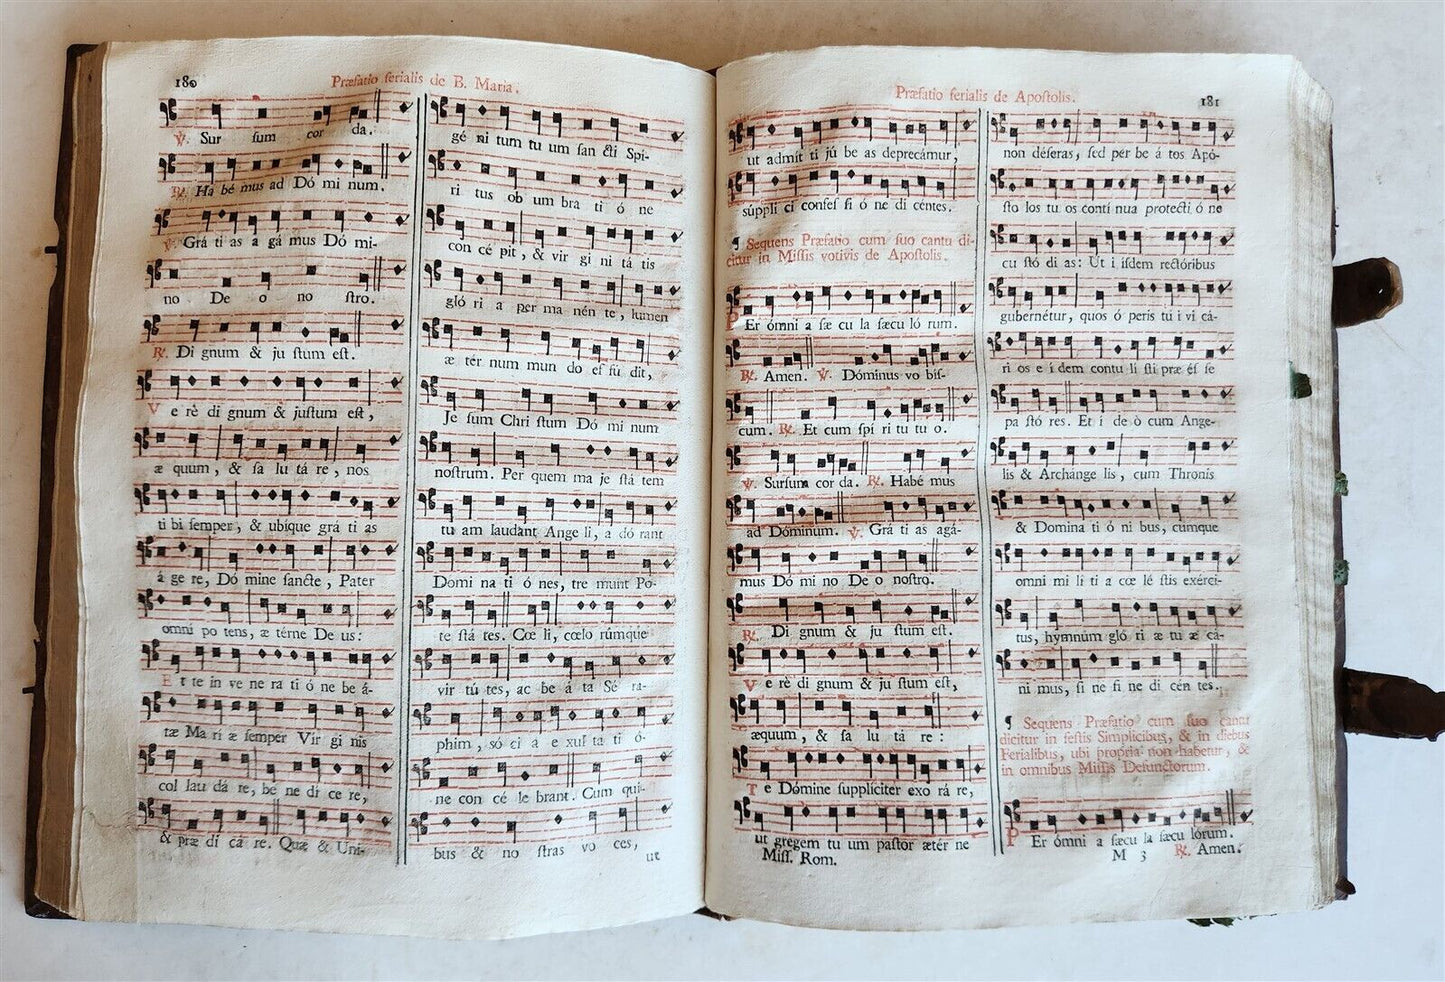 180
Præfatio ferialis de B. Maria.
℣. Sur sum cor da.
℟. Ha bé mus ad Dó mi num.
℣. Grá ti as a gá mus Dó mi-
no De o no ſtro.
℟. Di gnum & ju ſtum eſt.
V e rè di gnum & juſtum eſt,
æ quum, & ſa lu tá re, nos
ti bi ſemper, & ubique grá ti as
á ge re, Dó mine ſancte, Pater
omni po tens, æ térne De us:
E t te in ve ne ra ti ó ne be á-
tæ Ma rí æ ſemper Vír gi nis
col lau dá re, be ne dí ce re,
& præ di cá re. Quæ & Uni-
gé ni tum tu um ſan cti Spí-
ri tus ob um bra ti ó ne
con cé pit, & vir gi ni tá tis
gló ri a per ma nén te, lumen
æ tér num mun do ef fú dit,
Je ſum Chri ſtum Dó mi num
noſtrum. Per quem ma je ſtá tem
tu am laudant Ange li, a dó rant
Domi na ti ó nes, tre munt Po-
te ſtá tes. Cœ li, cœlo rúmque
vir tú tes, ac be á ta Sé ra-
phim, só ci a e xul ta ti ó-
ne con cé le brant. Cum qui-
bus & no ſtras vo ces,
ut
Præfatio ferialis de Apoſtolis.
181
ut admít ti jú be as deprecámur,
súppli ci confeſ ſi ó ne di céntes.
¶ Sequens Præfatio cum ſuo cantu di-
citur in Miſſis votivis de Apoſtolis.
P Er ómni a ſæ cu la ſæcu ló rum.
℟. Amen. ℣. Dóminus vo biſ-
cum. ℟. Et cum ſpí ri tu tu o.
℣. Surſum cor da. ℟. Habé mus
ad Dóminum. ℣. Grá ti as agá-
mus Dó mi no De o noſtro.
℟. Di gnum & ju ſtum eſt.
V e rè di gnum & ju ſtum eſt,
æquum, & ſa lu tá re:
T e Dómine ſupplíciter exo rá re,
ut gregem tu um paſtor ætér ne
Miſſ. Rom.
non déſeras, ſed per be á tos Apó-
ſto los tu os contí nua protecti ó ne
cu ſtó di as: Ut i íſdem rectóribus
gubernétur, quos ó peris tu i vi cá-
ri os e í dem contu lí ſti præ éſ ſe
pa ſtó res. Et í de ò cum Ange-
lis & Archánge lis, cum Thronis
& Domina ti ó ni bus, cumque
omni mi lí ti a cœ lé ſtis exérci-
tus, hymnum gló ri æ tu æ cá-
ni mus, ſi ne fi ne di cén tes.
¶ Sequens Præfatio cum ſuo cantu
dicitur in feſtis Simplicibus, & in diebus
Ferialibus, ubi propria non habetur, &
in omnibus Miſſis Defunctorum.
P Er ómni a ſæcu la ſæcu lórum.
M 3 ℟. Amen.